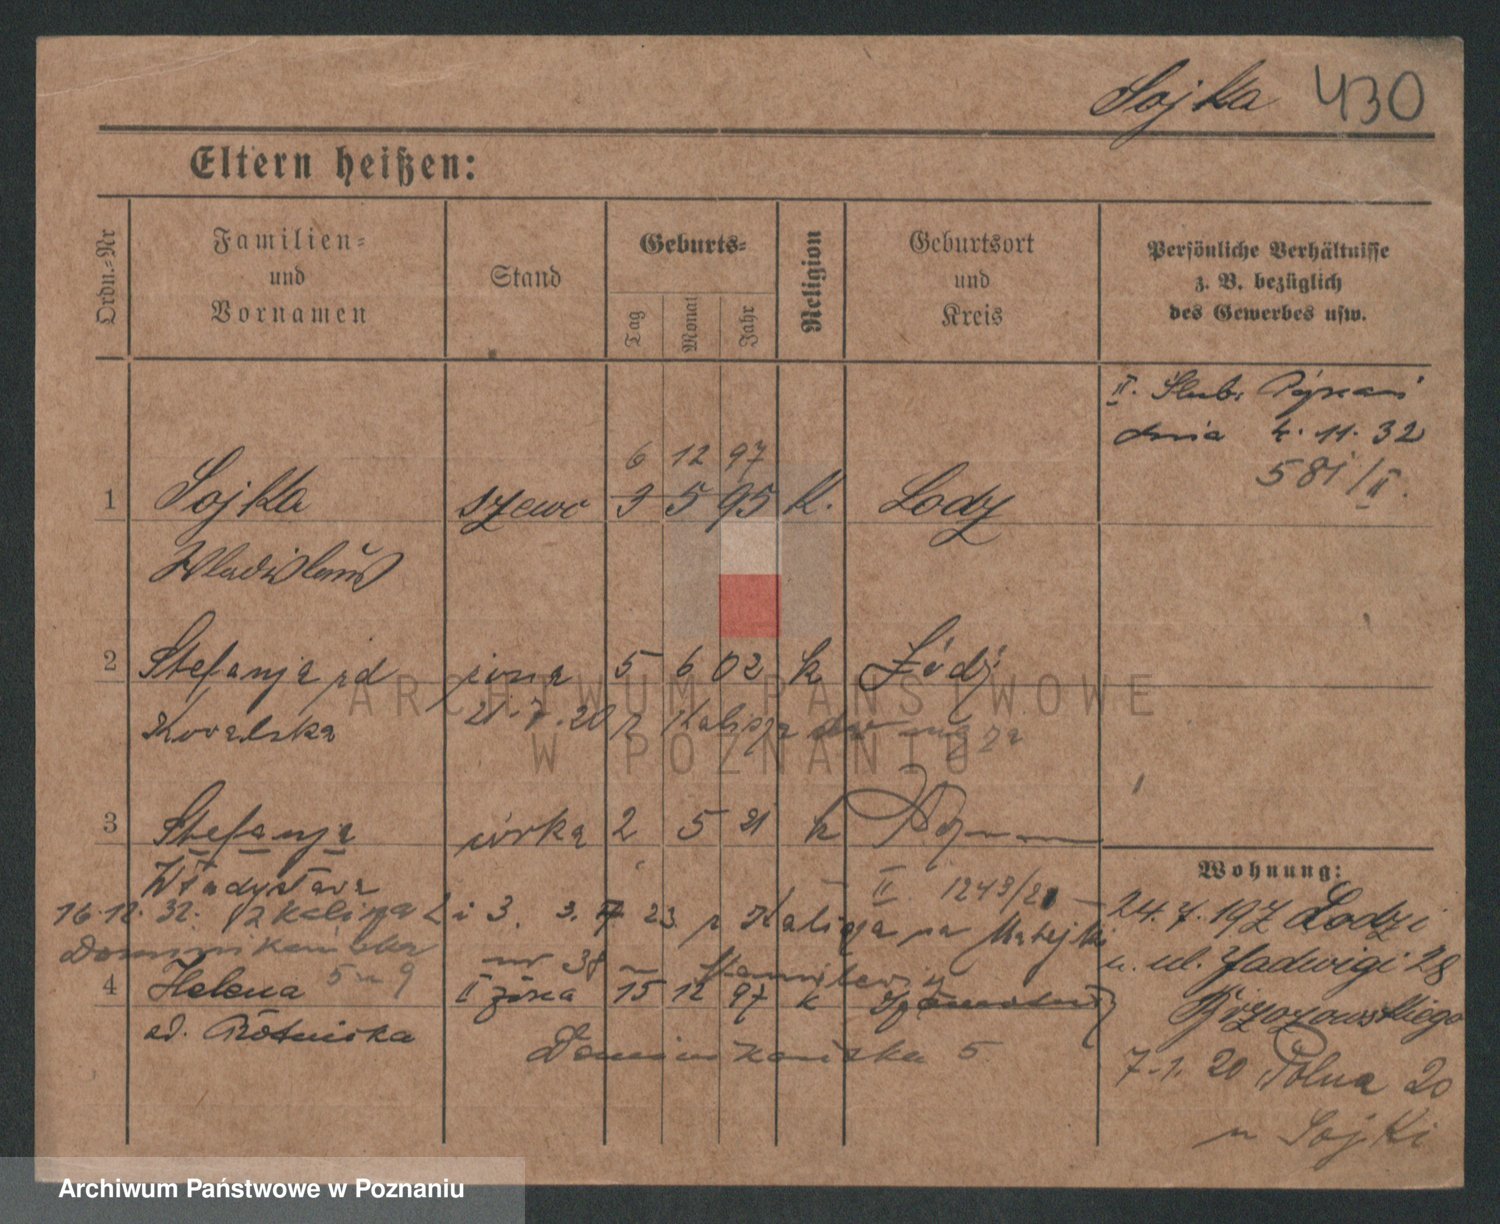 Sojka 430
Eltern heißen:
Ordn.-Nr
Familien- und Vornamen
Stand
Geburts-
Tag
Monat
Jahr
Religion
Geburtsort und Kreis
Persönliche Verhältnisse z. B. bezüglich des Gewerbes usw.
II. Ślub:
dnia 4. 11. 32
581/II.
6 12 97
1 Sojka szewc 3 5 95 K. Lodz
Wladislaus
2 Stefanja żona 5 6 02 k Łódź
Kovalska 21.7.20 z Kalisza
3 Stefanja córka 2 5 21 k
Władysława II. 1243/21
16.12.32. z Kalisza 3. 3. 23 z Kalisza
nr 38
5 m 9
4 Helena II żona 15 12 97 k
Dominikańska 5
Wohnung:
24.7.19 Z Lodzi
u. ul. Jadwigi 28
Brzozowskiego
7.1.20 Polna 20
u Sojki
ARCHIWUM PAŃSTWOWE
W POZNANIU
Archiwum Państwowe w Poznaniu